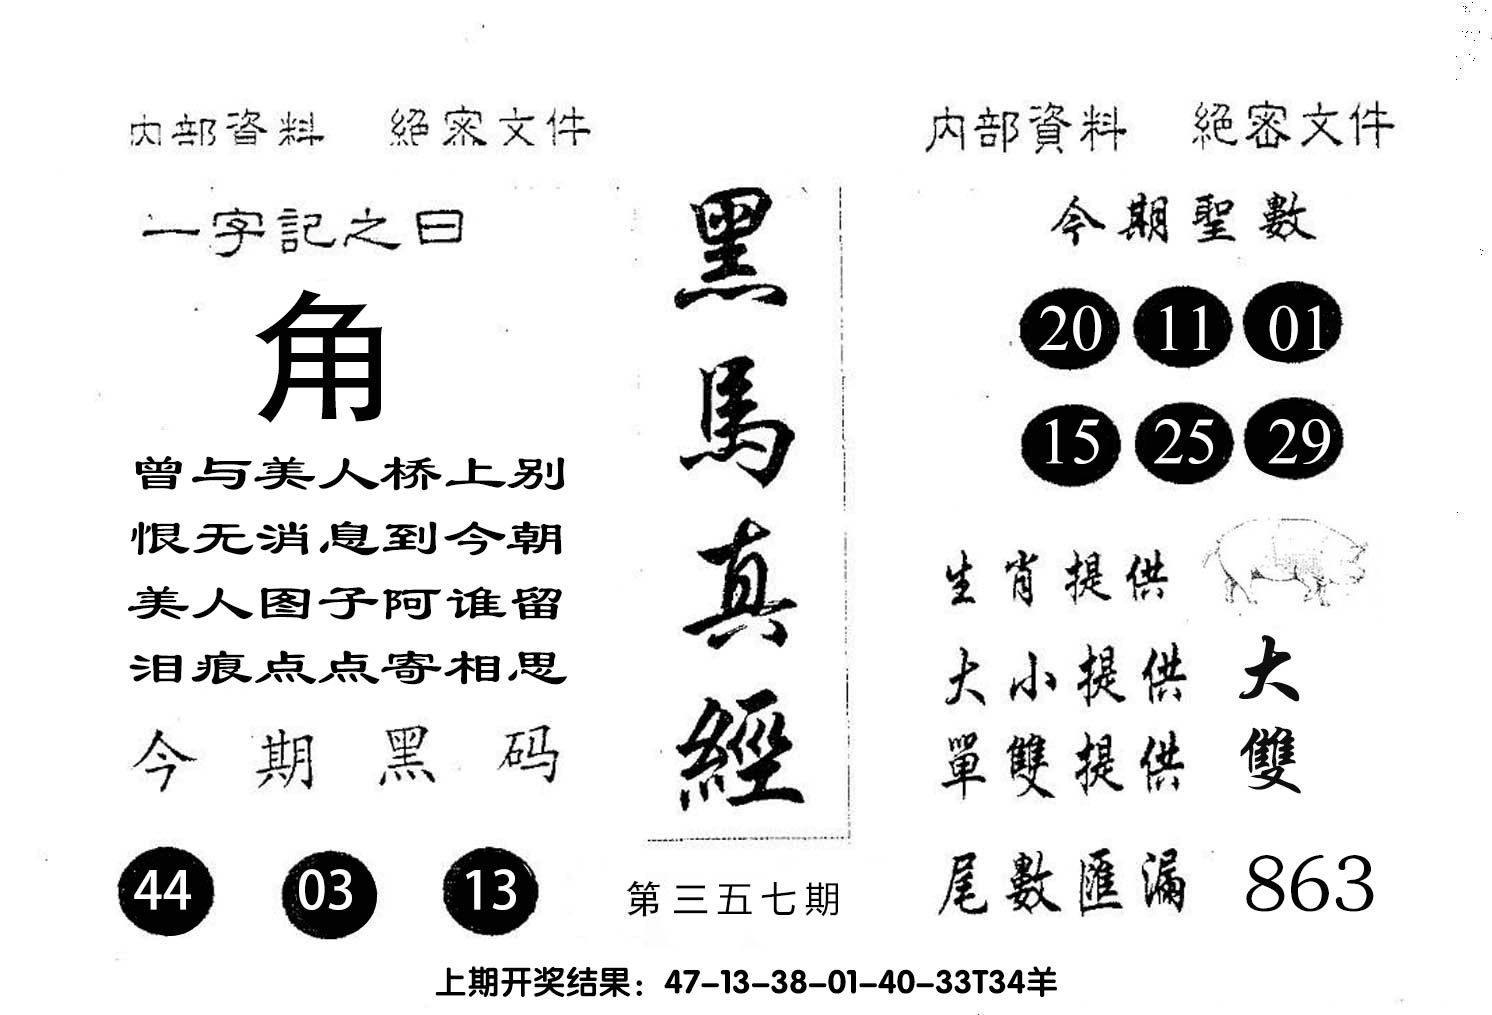 内部資料 絕密文件
一字記之曰
角
曾与美人桥上别
恨无消息到今朝
美人图子阿谁留
泪痕点点寄相思
今期黑码
44 03 13
黑馬真經
第三五七期
内部資料 絕密文件
今期聖數
20 11 01
15 25 29
生肖提供
大小提供 大
單雙提供 雙
尾數匯漏 863
上期开奖结果：47-13-38-01-40-33T34羊